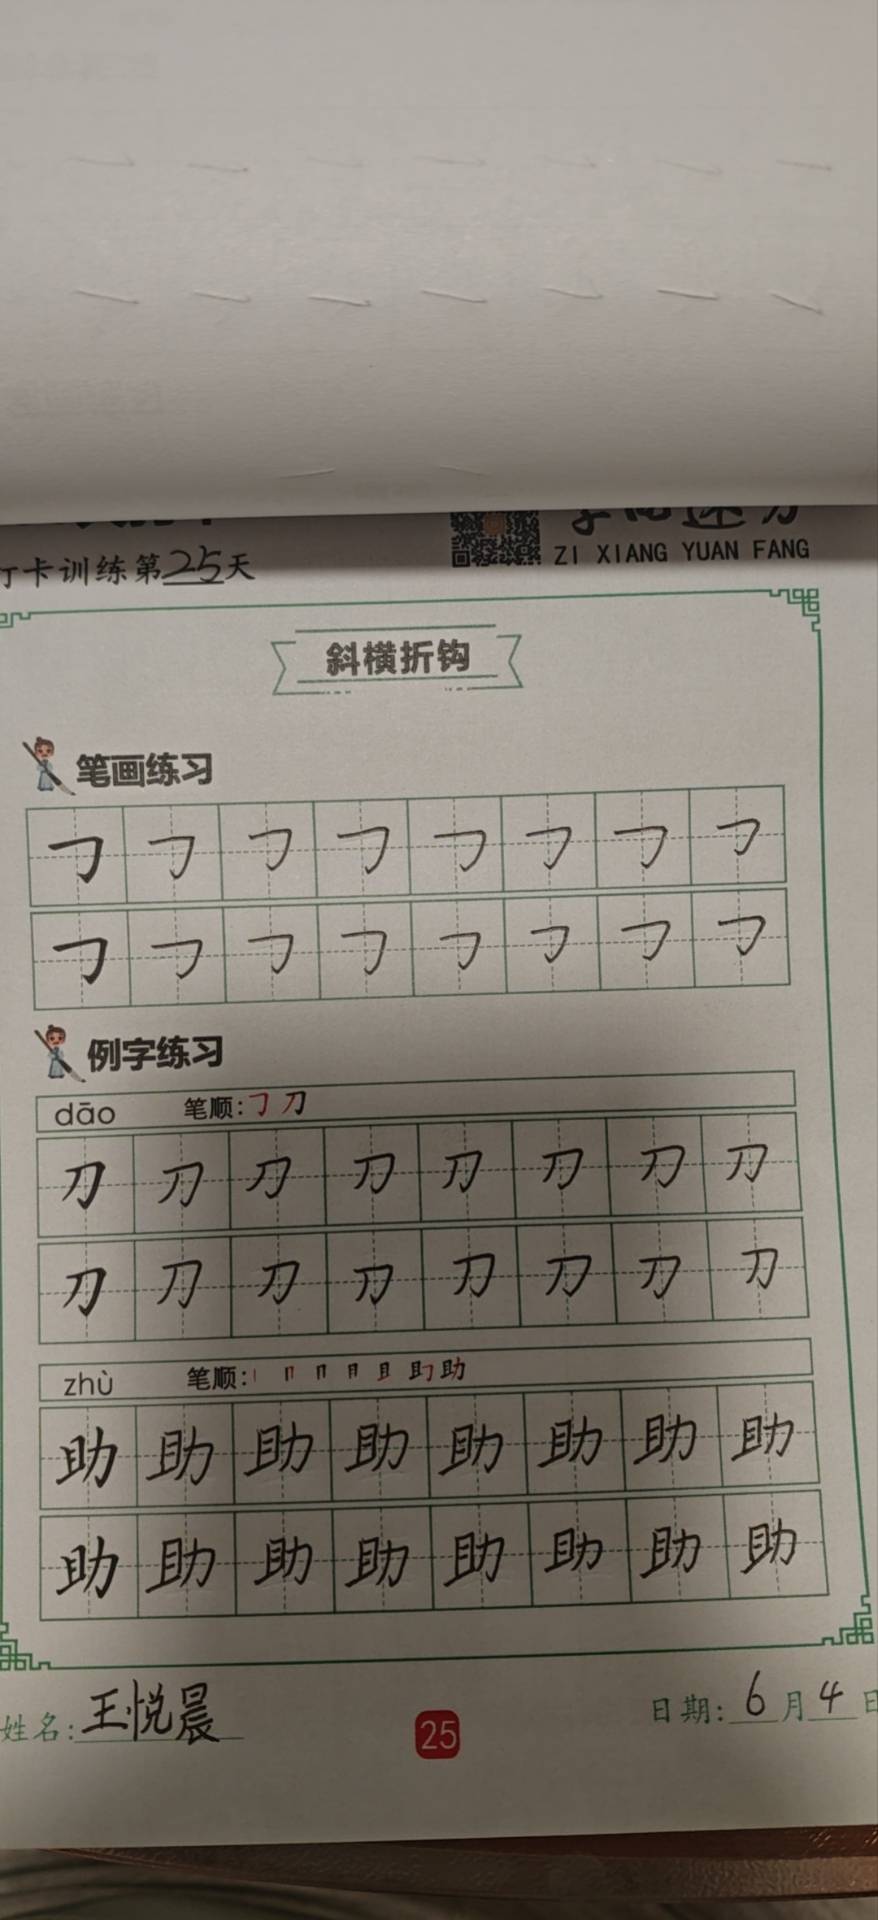 打卡训练第25天
ZI XIANG YUAN FANG
斜横折钩
笔画练习
㇆ ㇆ ㇆ ㇆ ㇆ ㇆ ㇆ ㇆
㇆ ㇆ ㇆ ㇆ ㇆ ㇆ ㇆ ㇆
例字练习
dāo 笔顺:㇆ 刀
刀 刀 刀 刀 刀 刀 刀 刀
刀 刀 刀 刀 刀 刀 刀 刀
zhù 笔顺:丨 冂 冂 月 且 助 助
助 助 助 助 助 助 助 助
助 助 助 助 助 助 助 助
姓名:王悦晨
25
日期:6月4日